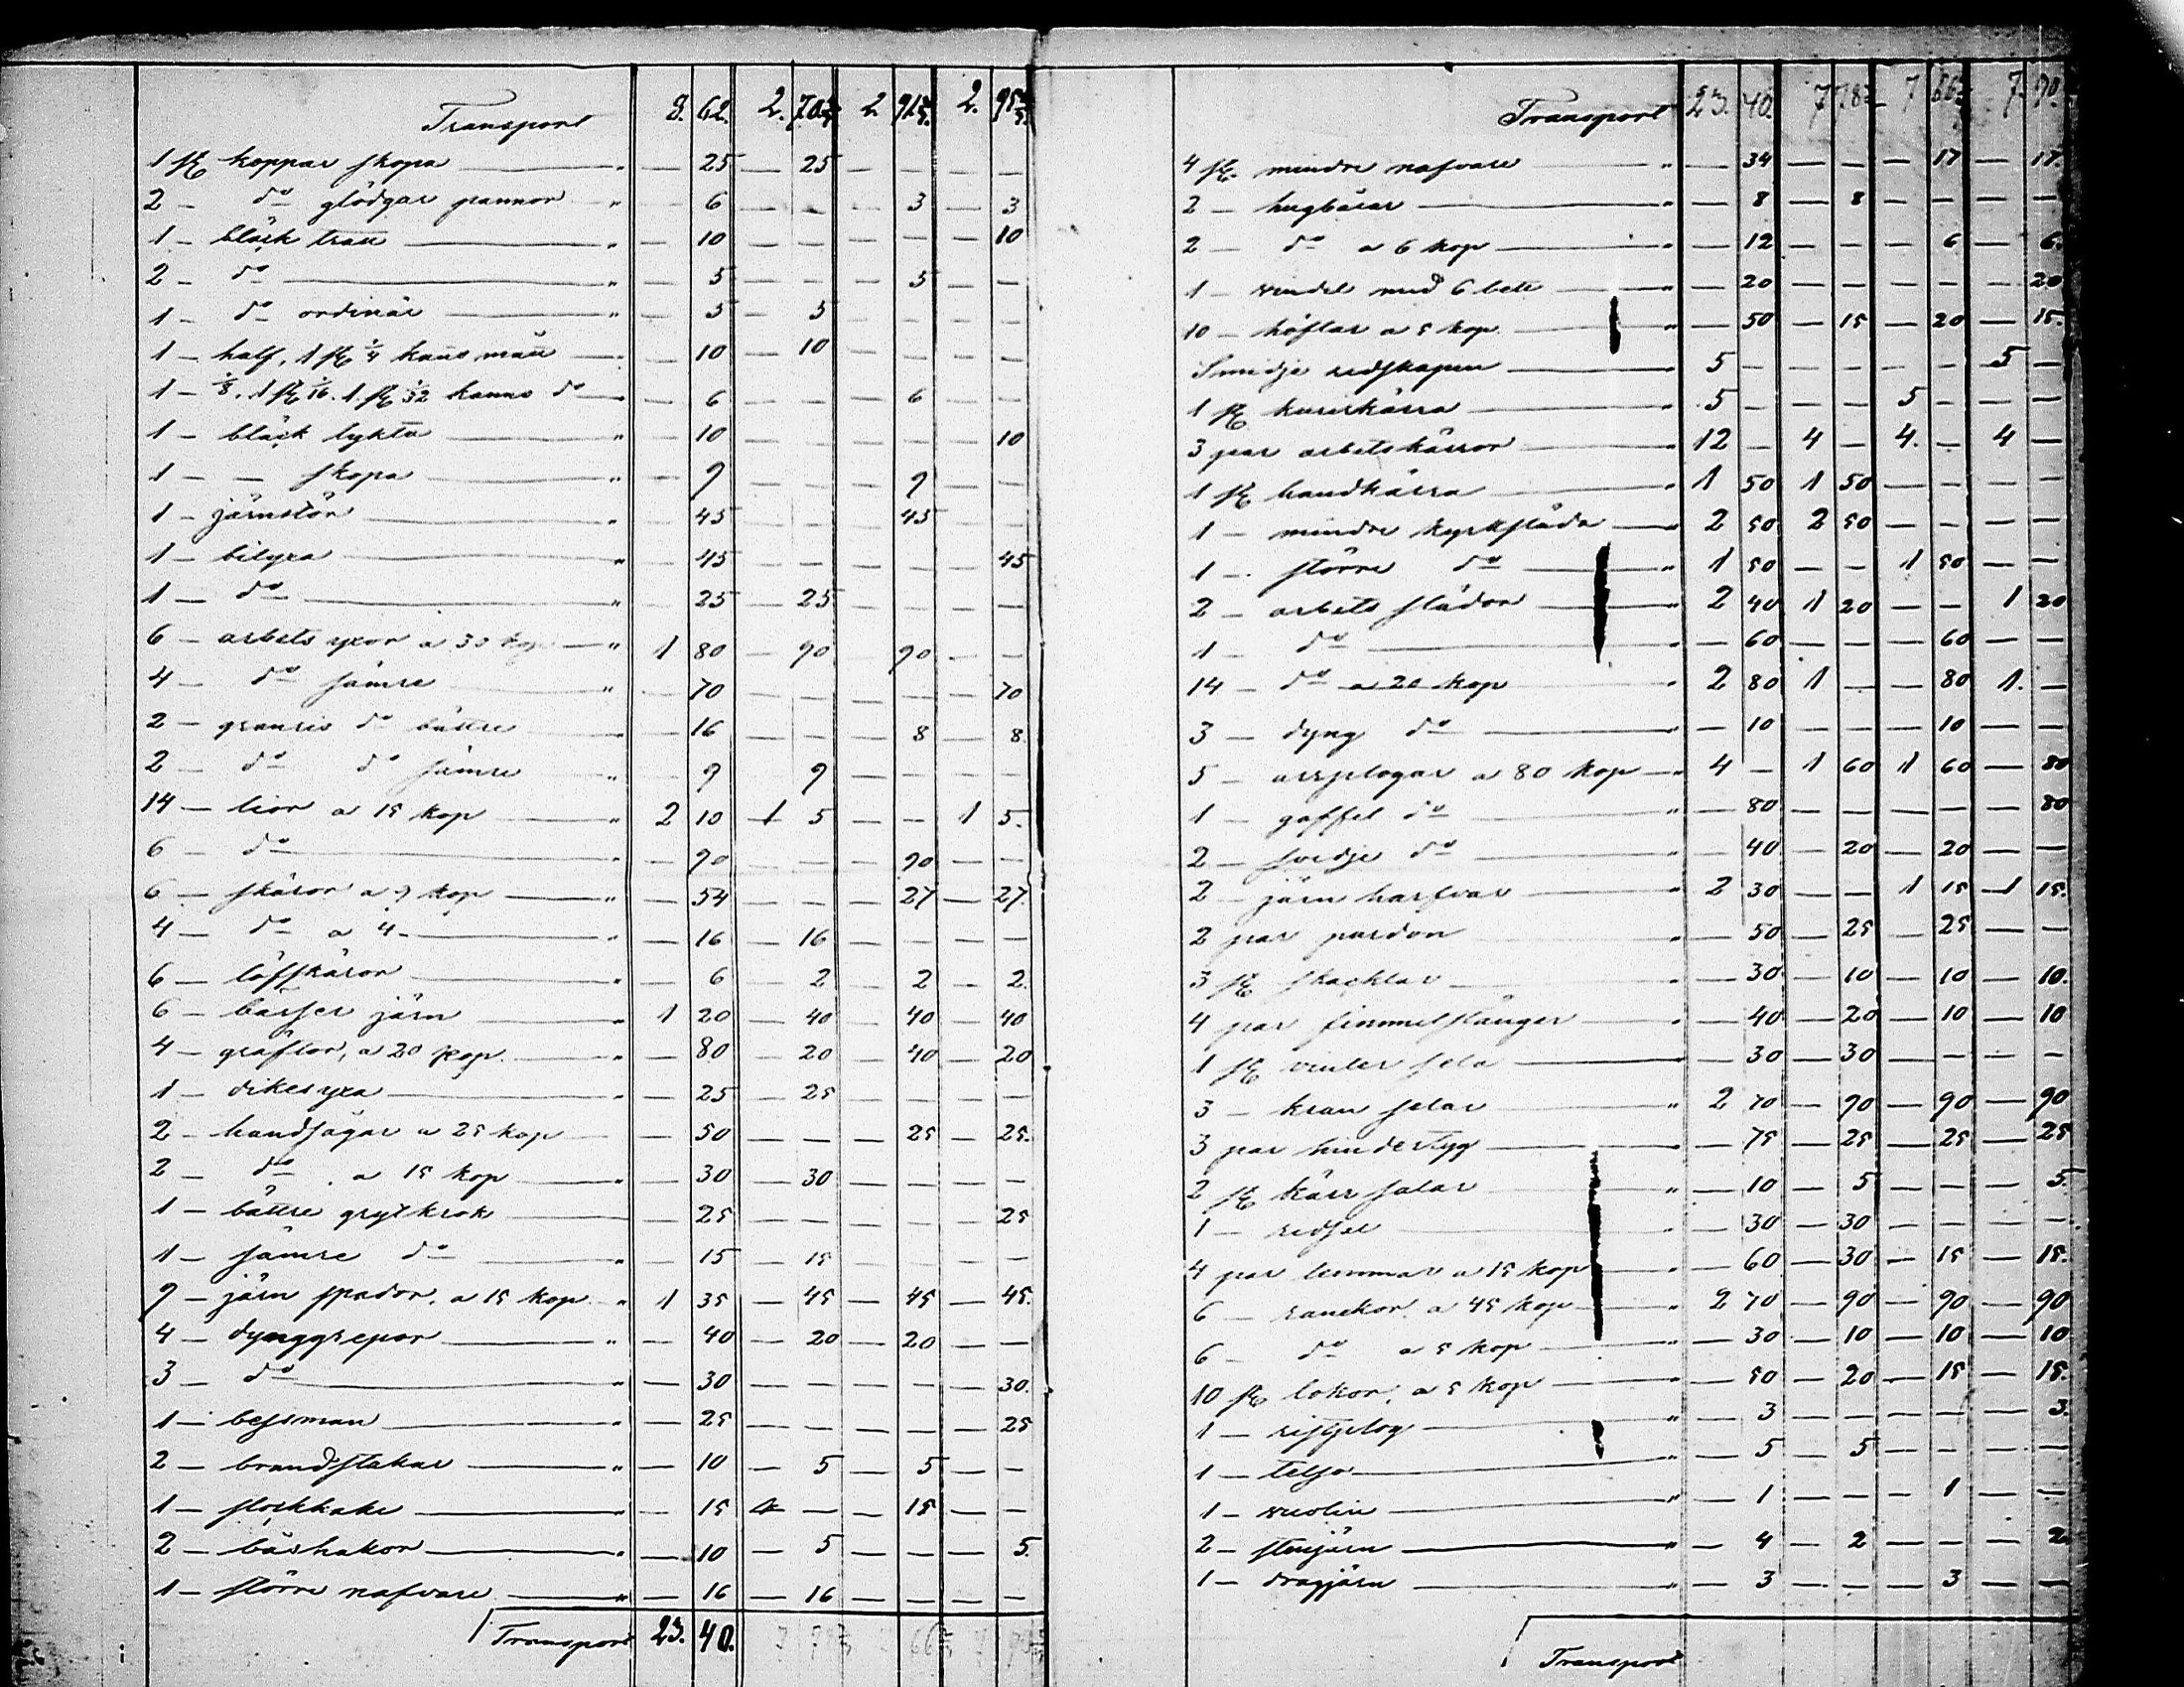 Transport 8. 62. 2. 2 2.
1 st koppar skopa — 25 — 25 — — — —
2 — do glödgar pannor — 6 — — — 3 — 3
1 — bläck tratt — 10 — — — — — 10
2 — do — 5 — — — 5 — —
1 — do ordinär — 5 — 5 — — — —
1 — half, 1 st 1/4 kans mått — 10 — 10 — — — —
1 — 1/8. 1 st 1/16. 1 st 1/32 kanns do — 6 — — — 6 — —
1 — bläck lykta — 10 — — — — — 10
1 — — skopa — 9 — — — 9 — —
1 — järnstör — 45 — — — 45 — —
1 — bilyxa — 45 — — — — — 45
1 — do — 25 — 25 — — — —
6 — arbets yxor a 30 kop — 1 80 — 90 — 90 — —
4 — do sämre — 70 — — — — — 70
2 — granris do bättre — 16 — — — 8 — 8
2 — do do sämre — 9 — 9 — — — —
14 — lior a 15 kop — 2 10 1 5 — — 1 5.
6 — do — 90 — — — 90 — —
6 — skäror a 9 kop — 54 — — — 27 — 27.
4 — do a 4 — — 16 — 16 — — — —
6 — löfskäror — 6 — 2 — 2 — 2.
6 — järn — 1 20 — 40 — 40 — 40
4 — gräftor, a 20 kop. — 80 — 20 — 40 — 20
1 — dikesyxa — 25 — 25 — — — —
2 — handsågar a 25 kop — 50 — — — 25 — 25.
2 — do a 15 kop — 30 — 30 — — — —
1 — bättre grytkrok — 25 — — — — — 25
1 — sämre do — 15 — 15 — — — —
9 — järn spador, a 15 kop. 1 35 — 45 — 45 — 45.
4 — dynggrepor — 40 — 20 — 20 — —
3 — do — 30 — — — — — 30.
1 — bessman — 25 — — — — — 25
2 — brandstakar — 10 — 5 — 5 — —
1 — stockhake — 15 — — — 15 — —
2 — båshakor — 10 — 5 — — — 5.
1 — större nafvare — 16 — 16 — — — —
Transport 23. 40.
Transport 23. 40. 7 7 7. 90.
4 st. mindre nafvare — 34 — — — 17 — 17.
2 — — 8 — 8 — — — —
2 — do a 6 kop — 12 — — — 6 — 6.
1 — vindel med 6 bett — 20 — — — — — 20
10 — höflar a 5 kop. — 50 — 15 — 20 — 15.
Smidje redskapen — 5 — — — — — 5 —
1 st kurirkärra — 5 — — — 5 — — —
3 par arbetskärror — 12 — 4 — 4. — 4 —
1 st handkärra — 1 50 1 50 — — — —
1 — mindre kyrksläda — 2 50 2 50 — — — —
1 — större do — 1 50 — — 1 50 — —
2 — arbets slädor — 2 40 1 20 — — 1 20
1 — do — 60 — — — 60 — —
14 — do a 20 kop — 2 80 1 — — 80 1. —
3 — dyng do — 10 — — — 10 — —
5 — arsplogar a 80 kop — 4 — 1 60 1 60 — 80
1 — gaffel do — 80 — — — — — 80
2 — svedje do — 40 — 20 — 20 — —
2 — järn harfvar — 2 30 — — 1 15 1 15.
2 par pardon — 50 — 25 — 25 — —
3 st skacklar — 30 — 10 — 10 — 10.
4 par fimmelstänger — 40 — 20 — 10 — 10
1 st vinter sela — 30 — 30 — — — —
3 — kran selar — 2 70 — 90 — 90 — 90
3 par hindertyg — 75 — 25 — 25 — 25
2 st kärr salar — 10 — 5 — — — 5.
1 — redsel — 30 — 30 — — — —
4 par lemmar a 15 kop — 60 — 30 — 15 — 15.
6 — ranckor, a 45 kop — 2 70 — 90 — 90 — 90
6 — do a 5 kop — 30 — 10 — 10 — 10
10 st lokor, a 5 kop — 50 — 20 — 15 — 15.
1 — ristplog — 3 — — — — — 3.
1 — telso — 5 — 5 — — — —
1 — vuolin — 1 — — — 1 — —
2 — stenjärn — 4 — 2 — — — 2
1 — dragjärn — 3 — — — 3 — —
Transport